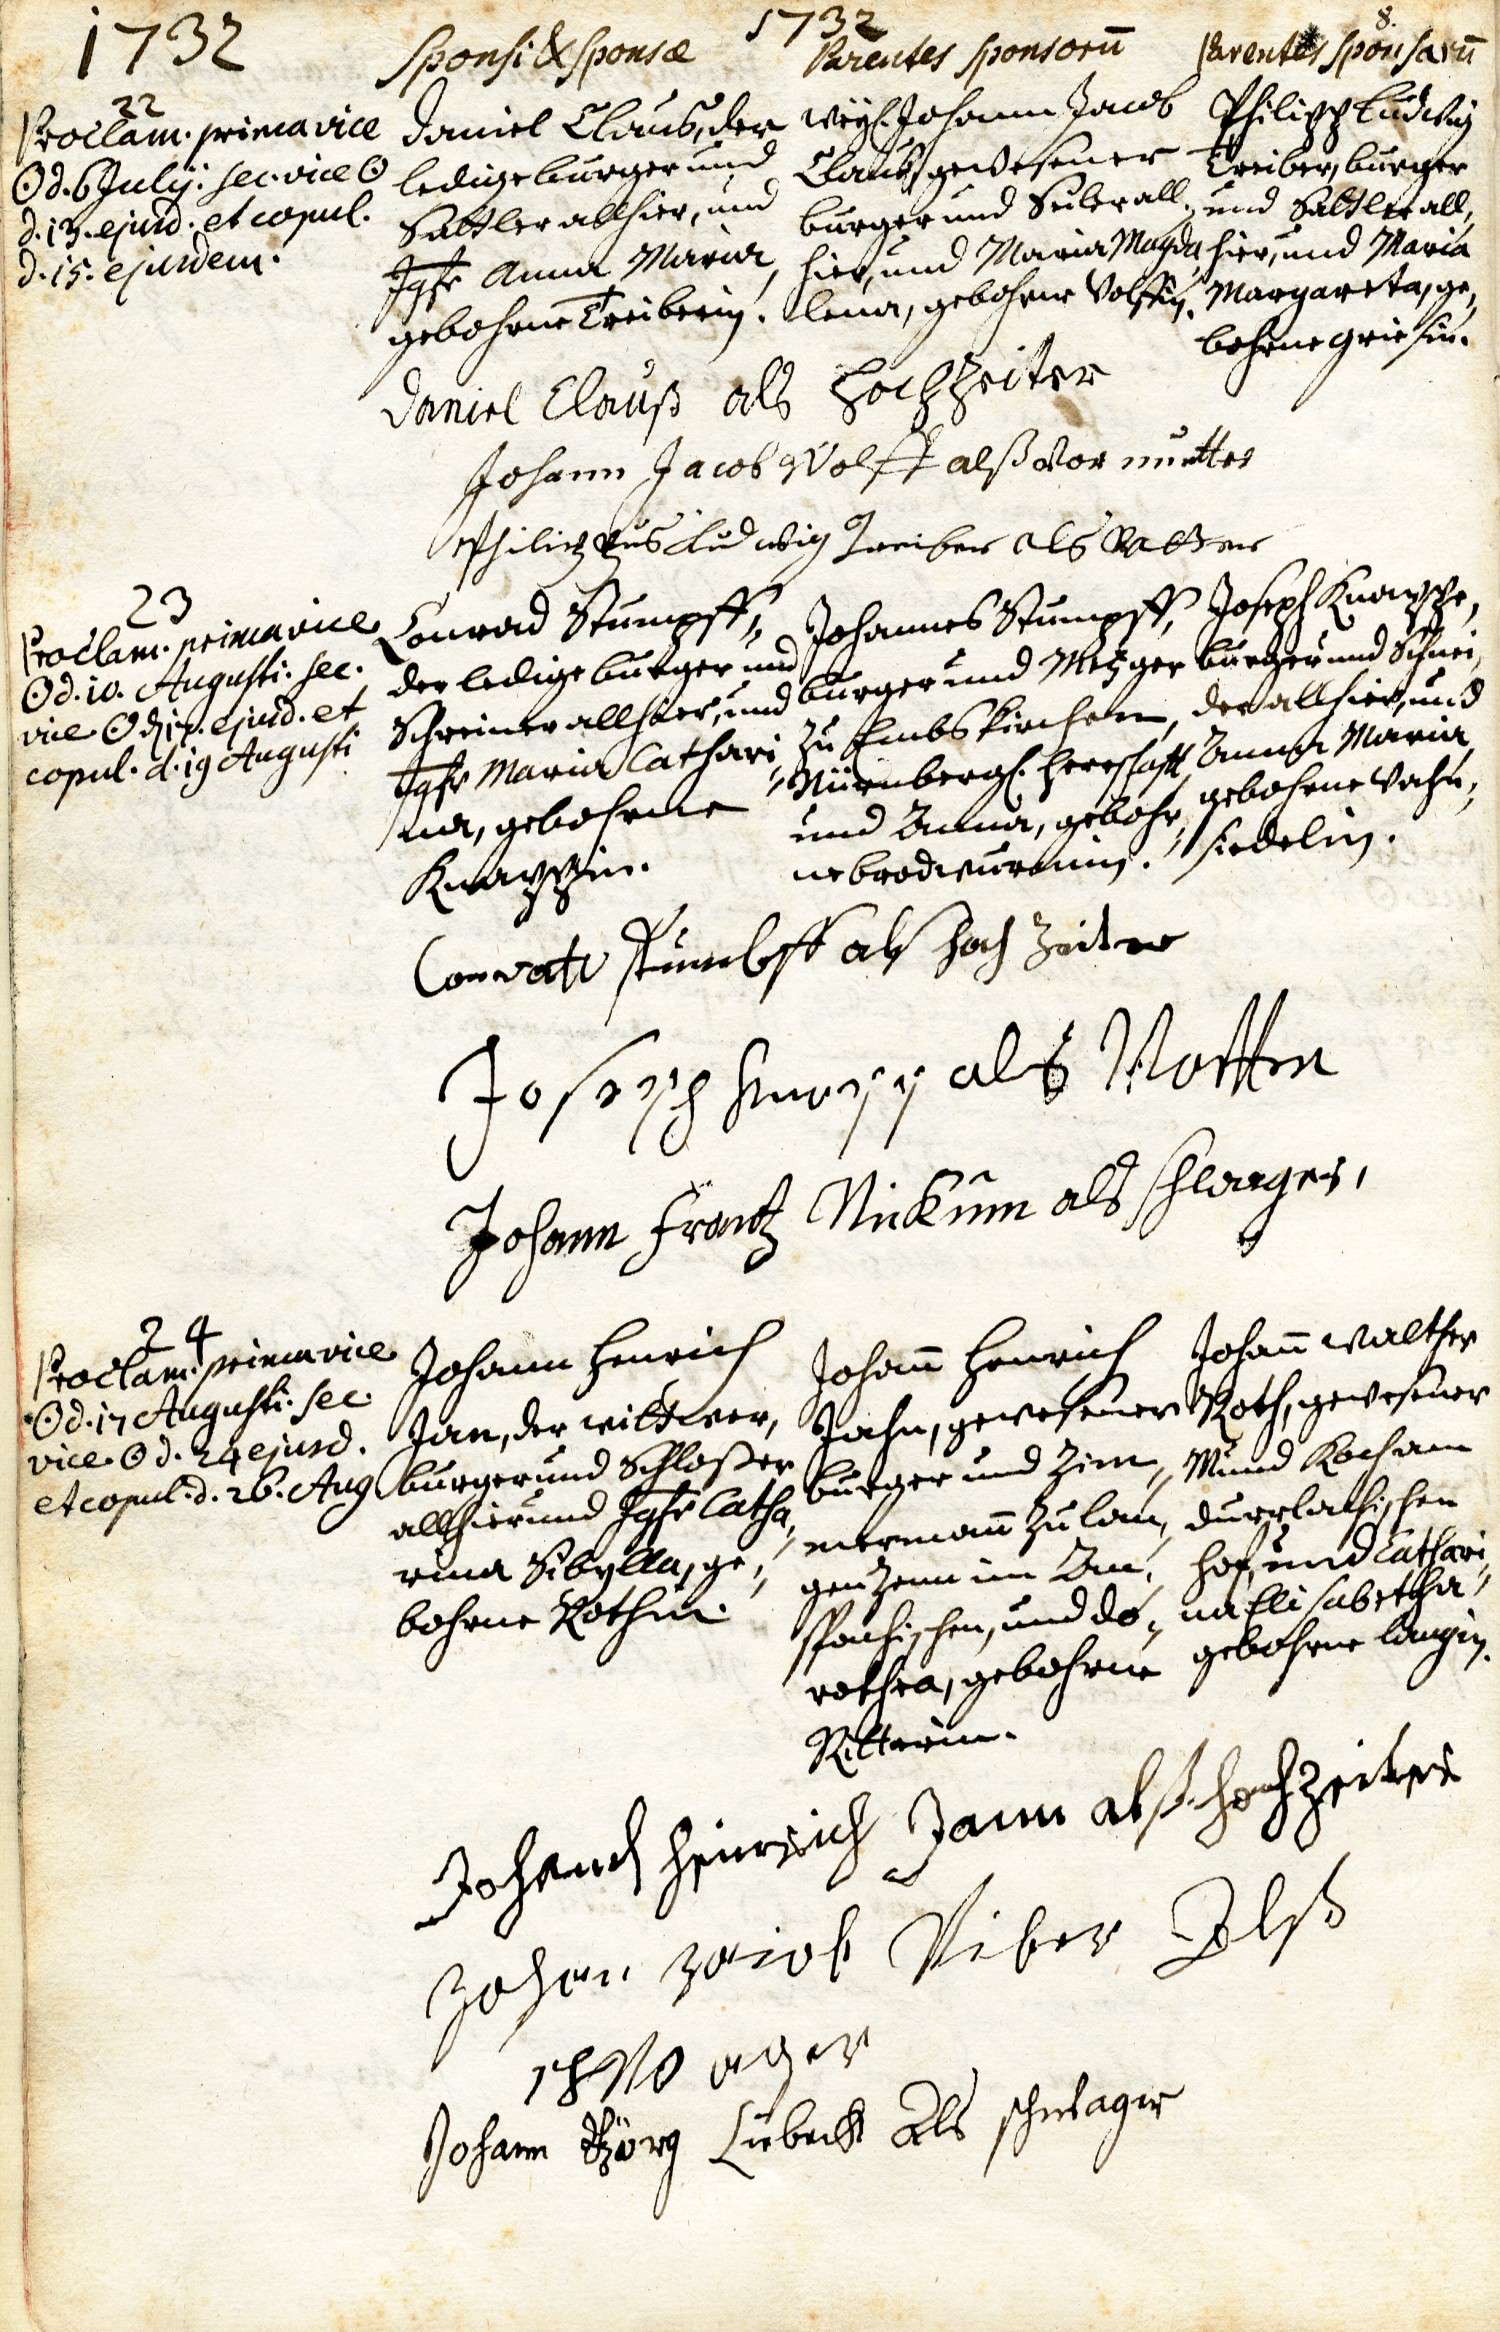 1732
1732
8.
Sponsi & Sponsæ
Parentes sponsorū
Parentes sponsarū
22
Proclam. prima vice
☉ d. 6 Julÿ. sec. vice ☉
d. 13. ejusd. et copul.
d. 15. ejusdem.
Daniel Clauß, der
ledige burger und
Sattler allhier, und
Jgfr Anna Maria,
gebohrne Treiberin.
weyl. Johann Jacob
Clauß gewesener
burger und all,
hier, und Maria Magda,
lena, gebohrne Volffin.
Philipp Ludwig
Treiber, burger
und Sattler all,
hier, und Maria
Margareta, ge,
bohrne Griesin.
Daniel Clauß als Hochzeiter
Johann Jacob Wolff alß Vor mutter
Philippus Ludwig Treiber als Vatter
23
Proclam. prima vice
☉ d. 10. Augusti. sec.
vice ☉ d. 17. ejusd. et
copul. d. 19 Augusti
Conrad Stumpff,
der ledige burger und
Schreiner allhier, und
Jgfr Maria Cathari,
na, gebohrne
Knappin.
Johannes Stumpff,
burger und Metzger
zu Embskirchen,
Nürnbergl. Herrschafft
und Anna, gebohr,
ne
Joseph Knappe,
burger und Schnei,
der allhier, und
Anna Maria
gebohrne Vahn,
siedelin.
Conrath stumbff als Hoch Zeiter
Joseph Knapp als Vatter
Johann Frantz Nickum als schwager,
24
Proclam. prima vice
☉ d. 17 Augusti. sec
vice ☉ d. 24 ejusd.
et copul. d. 26. Aug
Johann Henrich
Jan, der wittwer,
burger und Schloßer
allhier und Jgfr Catha,
rina Sibylla, ge,
bohrne Rothin.
Johañ Henrich
Jahn, gewesener
burger und Zim,
mermañ zu Lan,
genzenn im An,
spachischen, und Do,
rothea, gebohrne
Ritterin.
Johañ Walther
Roth, gewesener
Mund Koch am
durrlachischen
hof, und Cathari,
na Elisabetha
gebohrne Langin.
Johanch Heinrich Jann alß hochzeiter
Johan Jacob Viber Alß
schwager
Johann Görg Liebech Als schwager